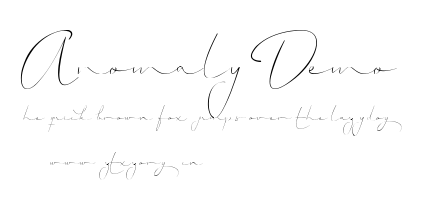 Anomaly Demo
he quick brown fox jumps over the lazy dog